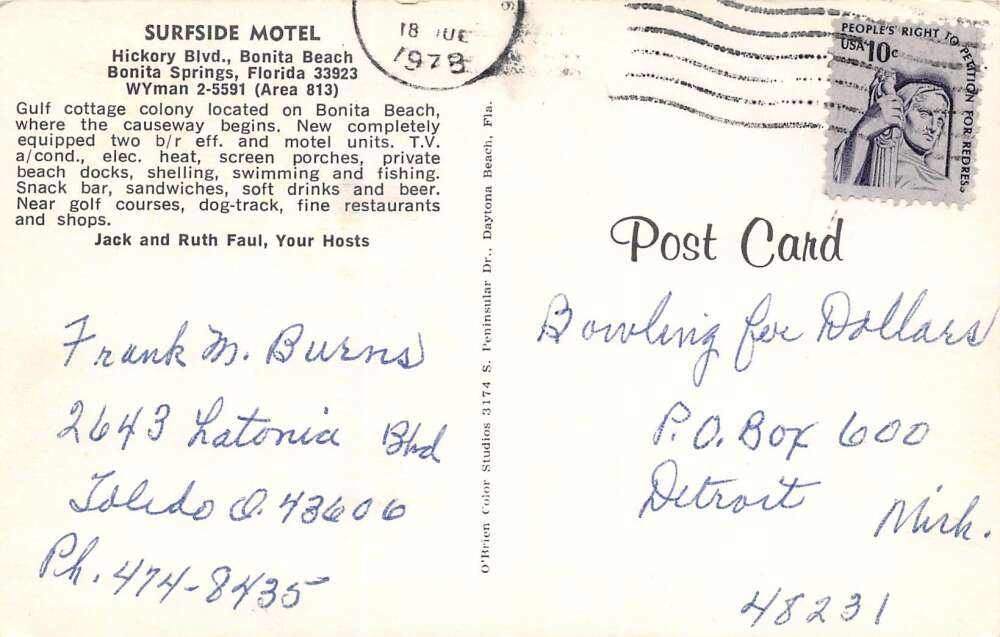 SURFSIDE MOTEL
Hickory Blvd., Bonita Beach
Bonita Springs, Florida 33923
WYman 2-5591 (Area 813)
Gulf cottage colony located on Bonita Beach,
where the causeway begins. New completely
equipped two b/r eff. and motel units. T.V.
a/cond., elec. heat, screen porches, private
beach docks, shelling, swimming and fishing.
Snack bar, sandwiches, soft drinks and beer.
Near golf courses, dog-track, fine restaurants
and shops.
Jack and Ruth Faul, Your Hosts
Frank M. Burns
2643 Latonia Blvd
Toledo O. 43606
Ph. 474-8435
O'Brien Color Studios 3174 S. Peninsular Dr., Daytona Beach, Fla.
18
1978
PEOPLE'S RIGHT TO PETITION FOR REDRESS
USA 10c
Post Card
Bowling for Dollars
P.O. Box 600
Detroit Mich.
48231